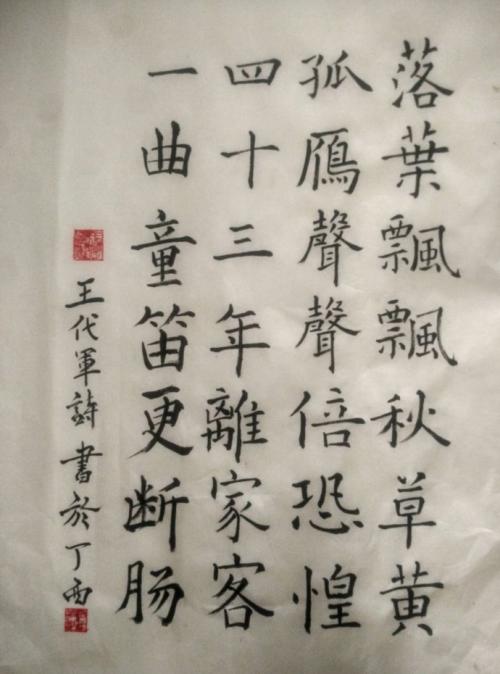 落葉飄飄秋草黄
孤鴈聲聲倍恐惶
四十三年離家客
一曲童笛更断肠
王代軍詩書於丁酉